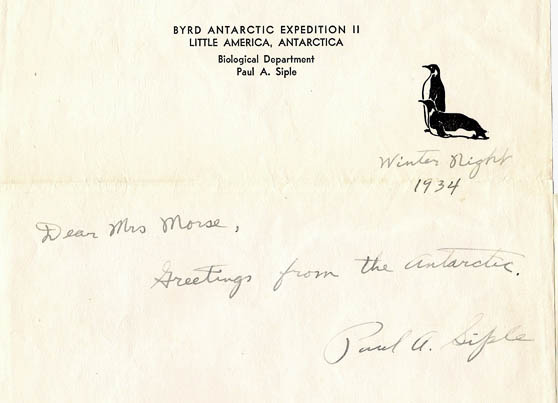 BYRD ANTARCTIC EXPEDITION II
LITTLE AMERICA, ANTARCTICA
Biological Department
Paul A. Siple
Winter Night
1934
Dear Mrs Morse,
Greetings from the Antarctic.
Paul A. Siple